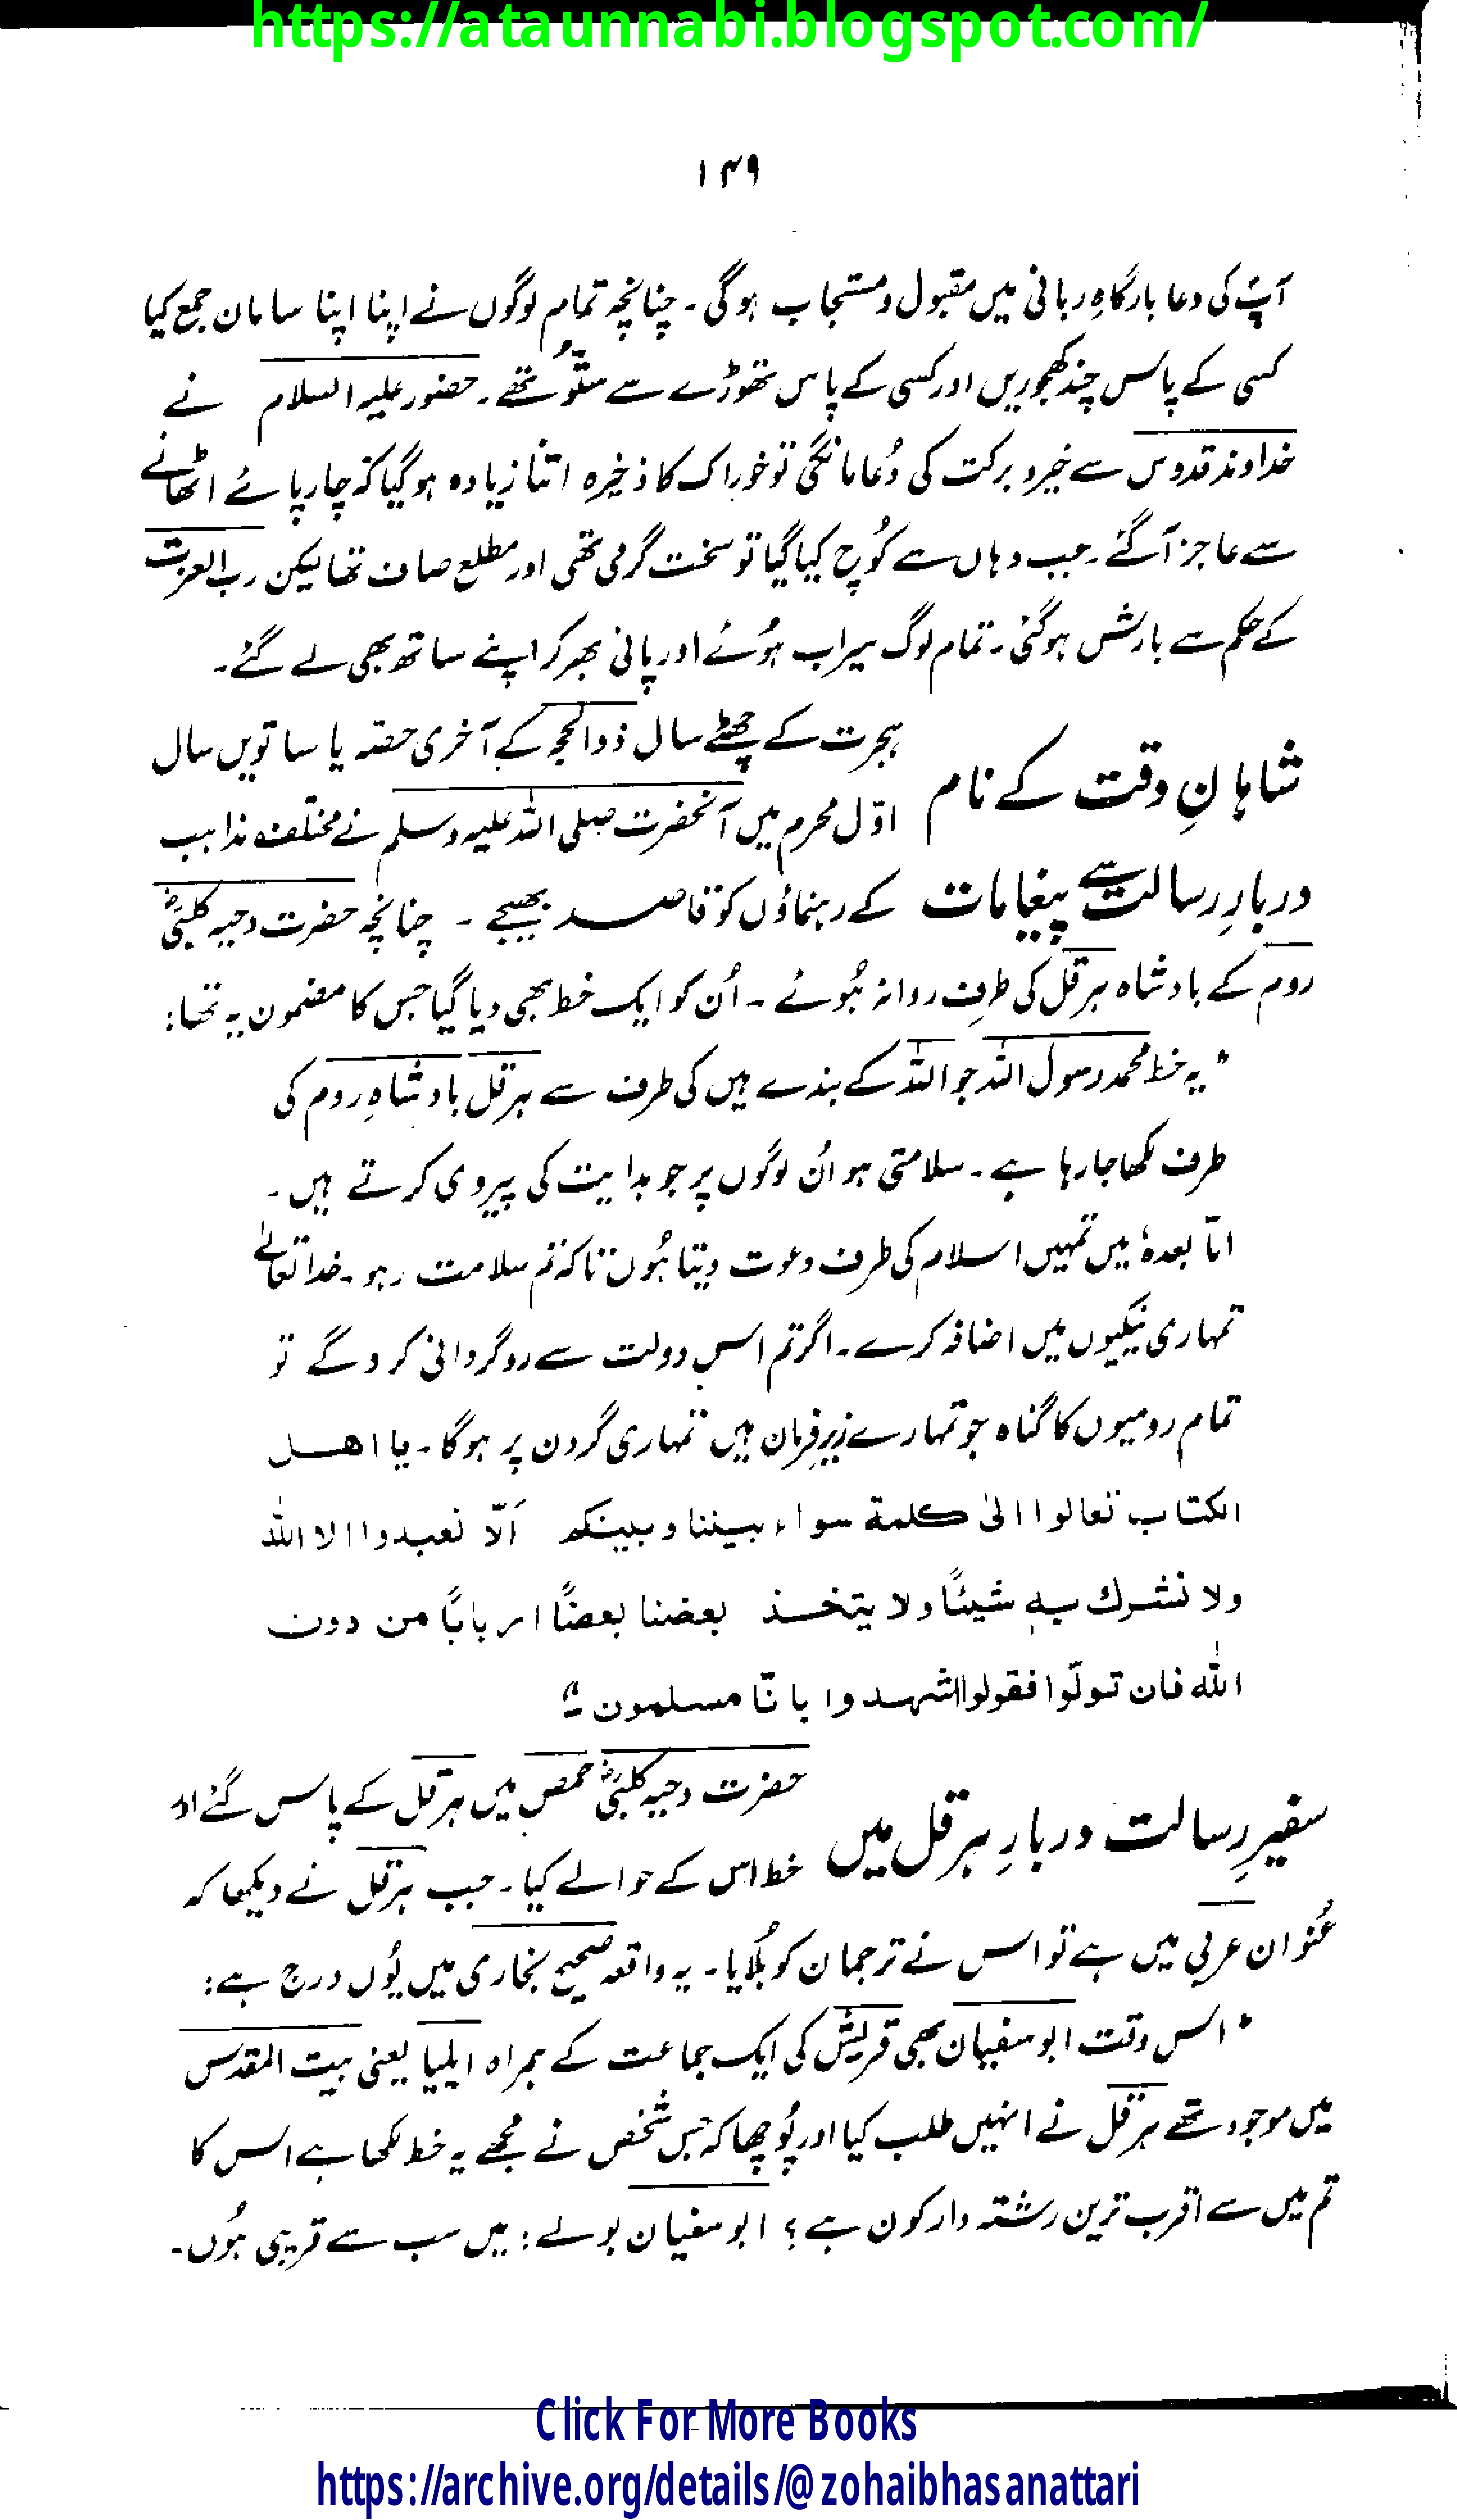 https://ataunnabi.blogspot.com/
۱۴۹
آپؐ کی دعا بارگاہِ ربانی میں مقبول و مستجاب ہوگی۔ چنانچہ تمام لوگوں نے اپنا اپنا سامان جمع کیا
کسی کے پاس چند کھجوریں اور کسی کے پاس تھوڑے سے ستّو تھے۔ حضور علیہ السلام نے
خداوند قدوس سے خیر و برکت کی دُعا مانگی تو خوراک کا ذخیرہ اتنا زیادہ ہوگیا کہ چارپائے اٹھانے
سے عاجز آگئے۔ جب وہاں سے کُوچ کیا گیا تو سخت گرمی تھی اور مطلع صاف تھا لیکن رب العزت
کے حکم سے بارش ہوگئی۔ تمام لوگ سیراب ہُوئے اور پانی بھر کر اپنے ساتھ بھی لے گئے۔
شاہانِ وقت کے نام
دربارِ رسالت سے پیغامات
ہجرت کے چھٹے سال ذوالحجہ کے آخری حصہ یا ساتویں سال
اوّل محرم میں آنحضرت صلی اللہ علیہ وسلم نے مختلف مذاہب
کے رہنماؤں کو قاصد بھیجے ۔ چنانچہ حضرت دحیہ کلبیؓ
روم کے بادشاہ ہرقل کی طرف روانہ ہُوئے ۔ اُن کو ایک خط بھی دیا گیا جس کا مضمون یہ تھا:
"یہ خط محمد رسول اللہ جو اللہ کے بندے ہیں کی طرف سے ہرقل بادشاہِ روم کی
طرف لکھا جا رہا ہے ۔ سلامتی ہو اُن لوگوں پر جو ہدایت کی پیروی کرتے ہیں ۔
امّا بعدہٗ میں تمہیں اسلام کی طرف دعوت دیتا ہُوں تاکہ تم سلامت رہو ۔ خدا تعالےٰ
تمہاری نیکیوں میں اضافہ کرے ۔ اگر تم اس دولت سے روگردانی کرو گے تو
تمام رومیوں کا گناہ جو تمہارے زیرِ فرمان ہیں تمہاری گردن پر ہوگا ۔ یا اھل
الکتاب تعالوا الیٰ کلمة سواء بیننا و بینکم اَلّا نعبدوا الا اللہ
ولا نشرك بہٖ شیئًا ولا یتخذ بعضنا بعضًا اربابًا من دون
اللہ فان تولّوا فقولوا اشہدوا بانّا مسلمون ۔"
سفیرِ رسالت دربارِ ہرقل میں
حضرت دحیہ کلبیؓ حمص میں ہرقل کے پاس گئے اور
خط اس کے حوالے کیا ۔ جب ہرقل نے دیکھا کہ
عُنوان عربی میں ہے تو اس نے ترجمان کو بُلایا ۔ یہ واقعہ صحیح بخاری میں یُوں درج ہے:
"اس وقت ابو سفیان بھی قریش کی ایک جماعت کے ہمراہ ایلیا یعنی بیت المقدس
میں موجود تھے ہرقل نے انہیں طلب کیا اور پُوچھا کہ جس شخص نے مجھے یہ خط لکھا ہے اس کا
تم میں سے اقرب ترین رشتہ دار کون ہے؟ ابو سفیان بولے: میں سب سے قریبی ہُوں۔
Click For More Books
https://archive.org/details/@zohaibhasanattari